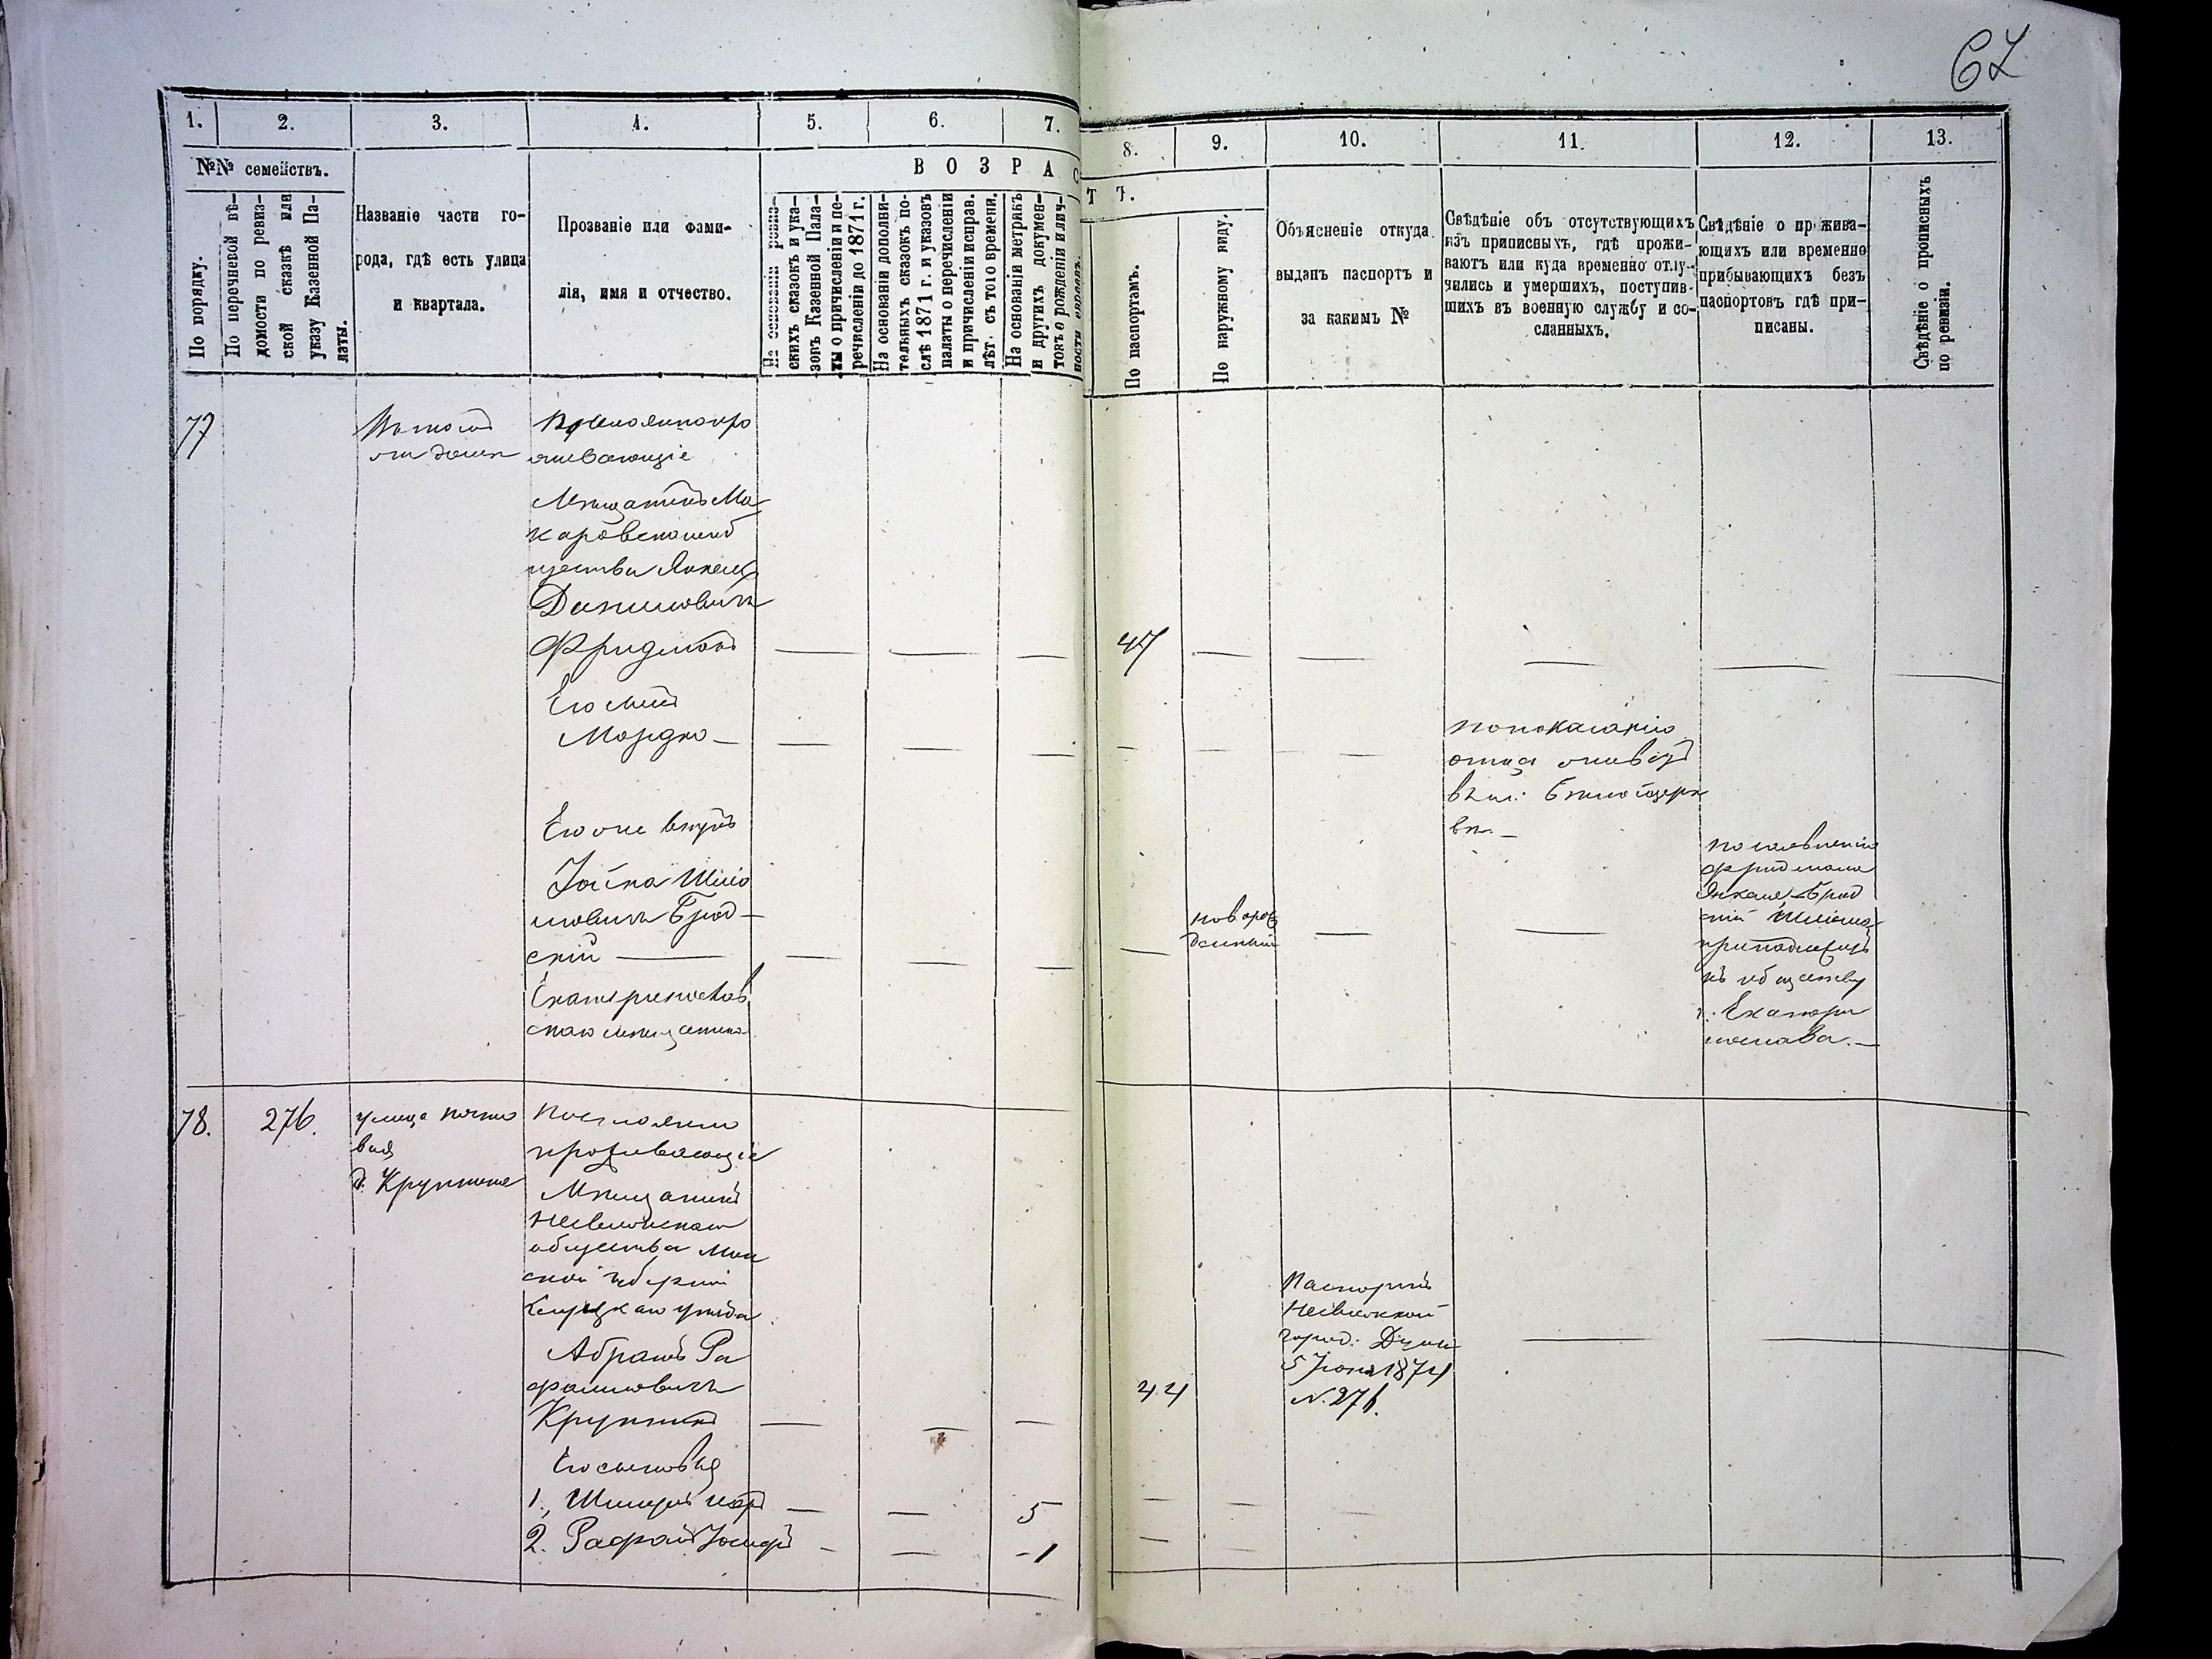 67
1.
2.
3.
4.
5.
6.
7.
8.
9.
10.
11.
12.
13.
№№ семействъ.
ВОЗРАСТЪ.
По порядку.
По перечневой вѣ-
домости по ревиз-
ской сказкѣ или
указу Казенной Па-
латы.
Названіе части го-
рода, гдѣ есть улица
и квартала.
Прозваніе или фами-
лія, имя и отчество.
На основаніи ревиз-
скихъ сказокъ и ука-
зовъ Казенной Пала-
ты о причисленіи и пе-
речисленіи до 1871 г.
На основаніи дополни-
тельныхъ сказокъ по-
слѣ 1871 г. и указовъ
палаты о перечисленіи
и причисленіи исправ.
лѣт. съ того времени.
На основаніи метрикъ
и другихъ докумен-
товъ о рожденіи и лич-
ности евреевъ.
По паспортамъ.
По наружному виду.
Объясненіе откуда
выданъ паспортъ и
за какимъ №
Свѣдѣніе объ отсутствующихъ
изъ приписныхъ, гдѣ прожи-
ваютъ или куда временно отлу-
чились и умершихъ, поступив-
шихъ въ военную службу и со-
сланныхъ.
Свѣдѣніе о прожива-
ющихъ или временно
прибывающихъ безъ
паспортовъ гдѣ при-
писаны.
Свѣдѣніе о прописныхъ
по ревизіи.
77
Въ томъ
же домѣ
живающіе
Мѣщанинъ Ма
каровскаго об
щества Янкель
Даниловичъ
Фридманъ
47
Его сынъ
Мордко
по показанію
отца живетъ
въ м. Бѣлой церк
вѣ.
Его же внукъ
Іойна Шліо
мовичъ Брод
скій
Екатеринослав
скаго мѣщанина
новорож
денный
по заявленію
Фридмана
Янкеля Брод
скій Шліома
принадлежитъ
къ обществу
г. Екатери
нослава.
78.
276.
улица почто
вая
д. Крупника
Постоянно
проживающіе
Мѣщанинъ
Несвижскаго
общества Мин
ской губерніи
Слуцкаго уѣзда
Абрамъ Ра
фаиловичъ
Крупникъ
44
Паспортъ
Несвижской
город. Думы
5 Іюня 1874
№ 276.
Его сыновья
1.
5
2. Рафаилъ Іосифъ
1